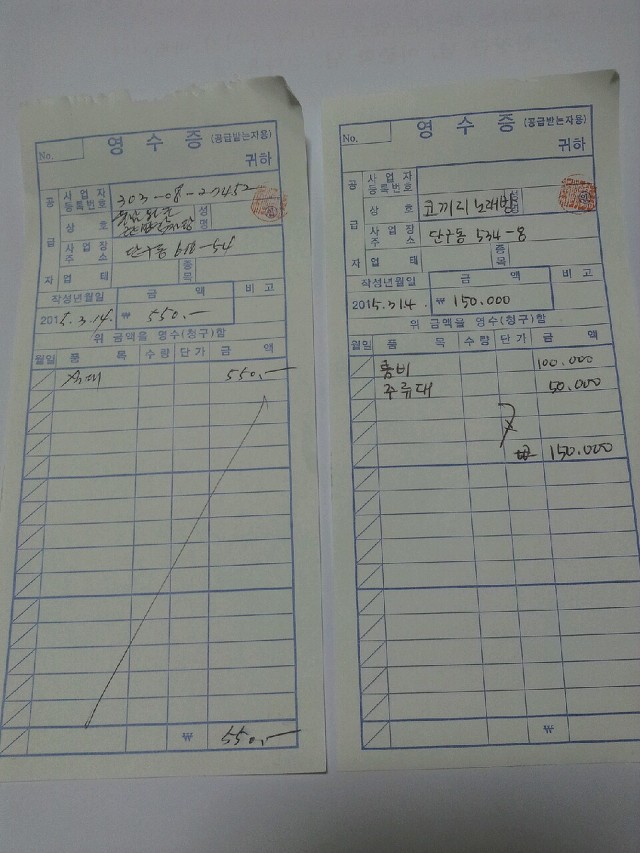 영 수 증 (공급받는자용)
No.
귀하
공 급 자
사업자 등록번호 303-08-27452
상 호 성 명
사업장 주소 단구동 618-54
업 태 종 목
작성년월일 금 액 비 고
2015. 3. 14. ₩ 550.-
위 금액을 영수(청구)함
월일 품 목 수량 단가 금 액
550.-
₩ 550.-
영 수 증 (공급받는자용)
No.
귀하
공 급 자
사업자 등록번호
상 호 코끼리노래방 성 명
사업장 주소 단구동 534-8
업 태 종 목
작성년월일 금 액 비 고
2015.3.14. ₩ 150.000
위 금액을 영수(청구)함
월일 품 목 수량 단가 금 액
룸비 100.000
주류대 50.000
150.000
₩